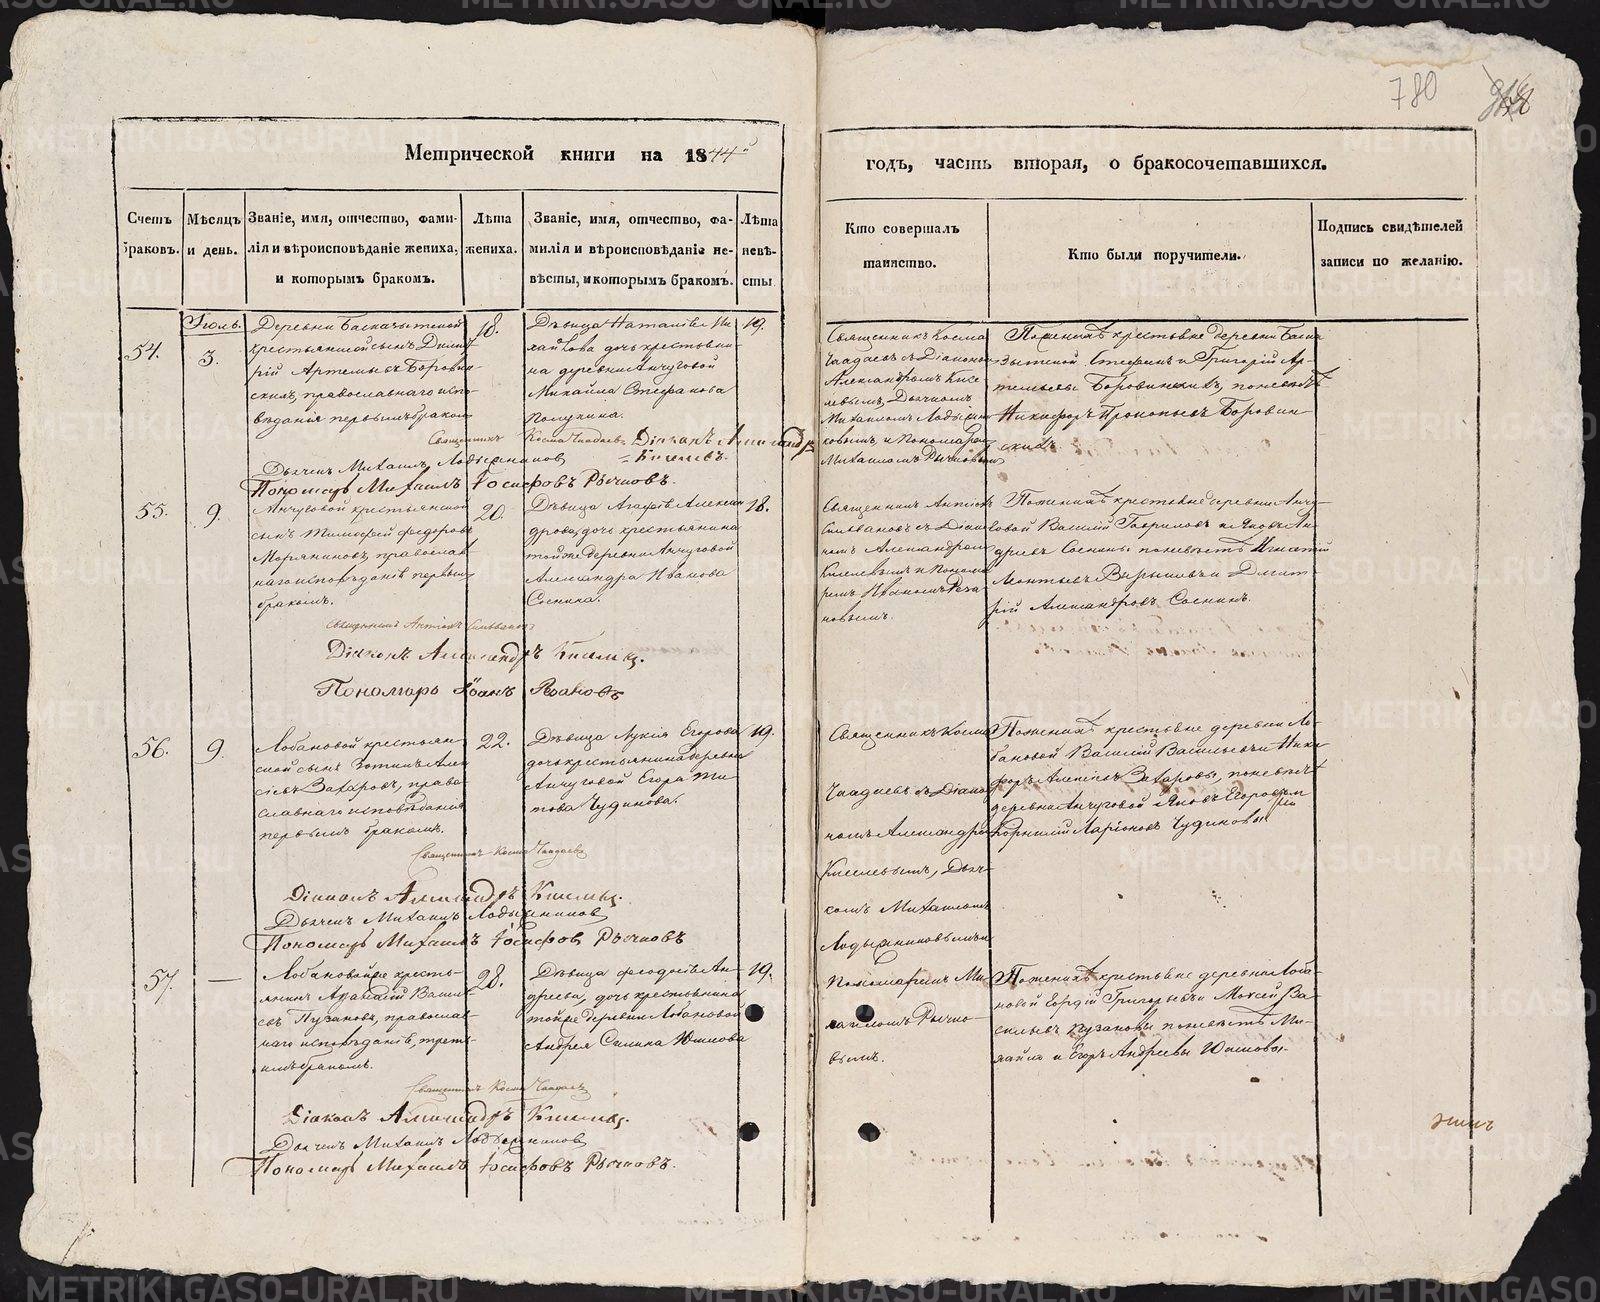 780
Метрической книги на 1844й
годъ, часть вторая, о бракосочетавшихся.
Счетъ браковъ.
Мѣсяцъ и день.
Званіе, имя, отчество, фами-
лія и вѣроисповѣданіе жениха,
и которымъ бракомъ.
Лѣта
жениха.
Званіе, имя, отчество, фа-
милія и вѣроисповѣданіе не-
вѣсты, и которымъ бракомъ.
Лѣта
невѣ-
сты
Кто совершалъ
таинство.
Кто были поручители.
Подпись свидѣтелей
записи по желанію.
54.
Іюль.
3.
Деревни
крестьянской сынъ Димит
рій Артемьевъ Борови
скихъ, православнаго испо
вѣданія первымъ бракомъ
18.
Дѣвица Наталія Ми
хайлова дочь крестьяни
на деревни Анчуговой
Михайла Стефанова
Полухина.
19.
Священникъ Косма
Чаадаевъ съ Діакономъ
Александромъ Кисе
левымъ, Дьячкомъ
Михаиломъ Лодыжни
ковымъ и Пономаремъ
Михаиломъ Рычковымъ
По женихѣ крестьяне деревни
Стефанъ и Григорій Ар-
темьевы Боровинскихъ, по невѣстѣ
Никифоръ Прокопьевъ Боровин
скихъ
Священникъ Косма Чаадаевъ Діаконъ Александръ
Киселевъ.
Дьячекъ Михаилъ Лодыжниковъ
Пономарь Михаилъ Іосифовъ Рычковъ.
55.
9.
Анчуговой крестьянской
сынъ Тимофей Федоровъ
православ
наго исповѣданія первымъ
бракомъ.
20.
Дѣвица Агафія Алексан
дрова, дочь крестьянина
той же деревни Анчуговой
Александра Иванова
Соснина.
18.
Священникъ Антіохъ
Сильвановъ съ Діако
номъ Александромъ
Киселевымъ и Понома
ремъ Иваномъ
По женихѣ крестьяне деревни Анчу
говой Василій Гавриловъ и Яковъ Ан
дреевъ Соснины по невѣстѣ Игнатій
Леонтьевъ и Дмит
рій Александровъ Соснинъ.
Священникъ Антіохъ Сильвановъ
Діаконъ Александръ Киселевъ.
Пономарь Іоанъ
56.
9.
Лобановой крестьян
ской сынъ Зотикъ Алек
сіевъ Захаровъ, право
славнаго исповѣданія
первымъ бракомъ.
22.
Дѣвица Лукія Егорова
дочь крестьянина деревни
Анчуговой Егора Ти
това Чудинова.
19.
Священникъ Косма
Чаадаевъ съ Діако
номъ Александромъ
Киселевымъ, Дьяч-
комъ Михаиломъ
Лодыжниковымъ и
Пономаремъ Ми-
хаиломъ Рычко-
вымъ.
По женихѣ крестьяне деревни Ло-
бановой Василій Васильевъ и Ники
форъ Алексіевъ Захаровы, по невѣстѣ
деревни Анчуговой Яковъ Егоровъ и
Корнилій Ларіоновъ Чудиновы
Священникъ Косма Чаадаевъ
Діаконъ Александръ Киселевъ.
Дьячекъ Михаилъ Лодыжниковъ
Пономарь Михаилъ Іосифовъ Рычковъ
57.
—
Лобановой же кресть-
янинъ Василь-
евъ Пузановъ, православ-
наго исповѣданія, треть-
имъ бракомъ.
28.
Дѣвица Феодосія Ан-
дреева, дочь крестьянина
той же деревни Лобановой
Андрея Силина Юшкова
19.
По женихѣ крестьяне деревни Лоба-
новой Григорьевъ и Моисей Ва-
сильевъ Пузановы по невѣстѣ Ми-
хайло и Егоръ Андреевы Юшковы.
Священникъ Косма Чаадаевъ
Діаконъ Александръ Киселевъ.
Дьячекъ Михаилъ Лодыжниковъ
Пономарь Михаилъ Іосифовъ Рычковъ.
METRIKI.GASO-URAL.RU